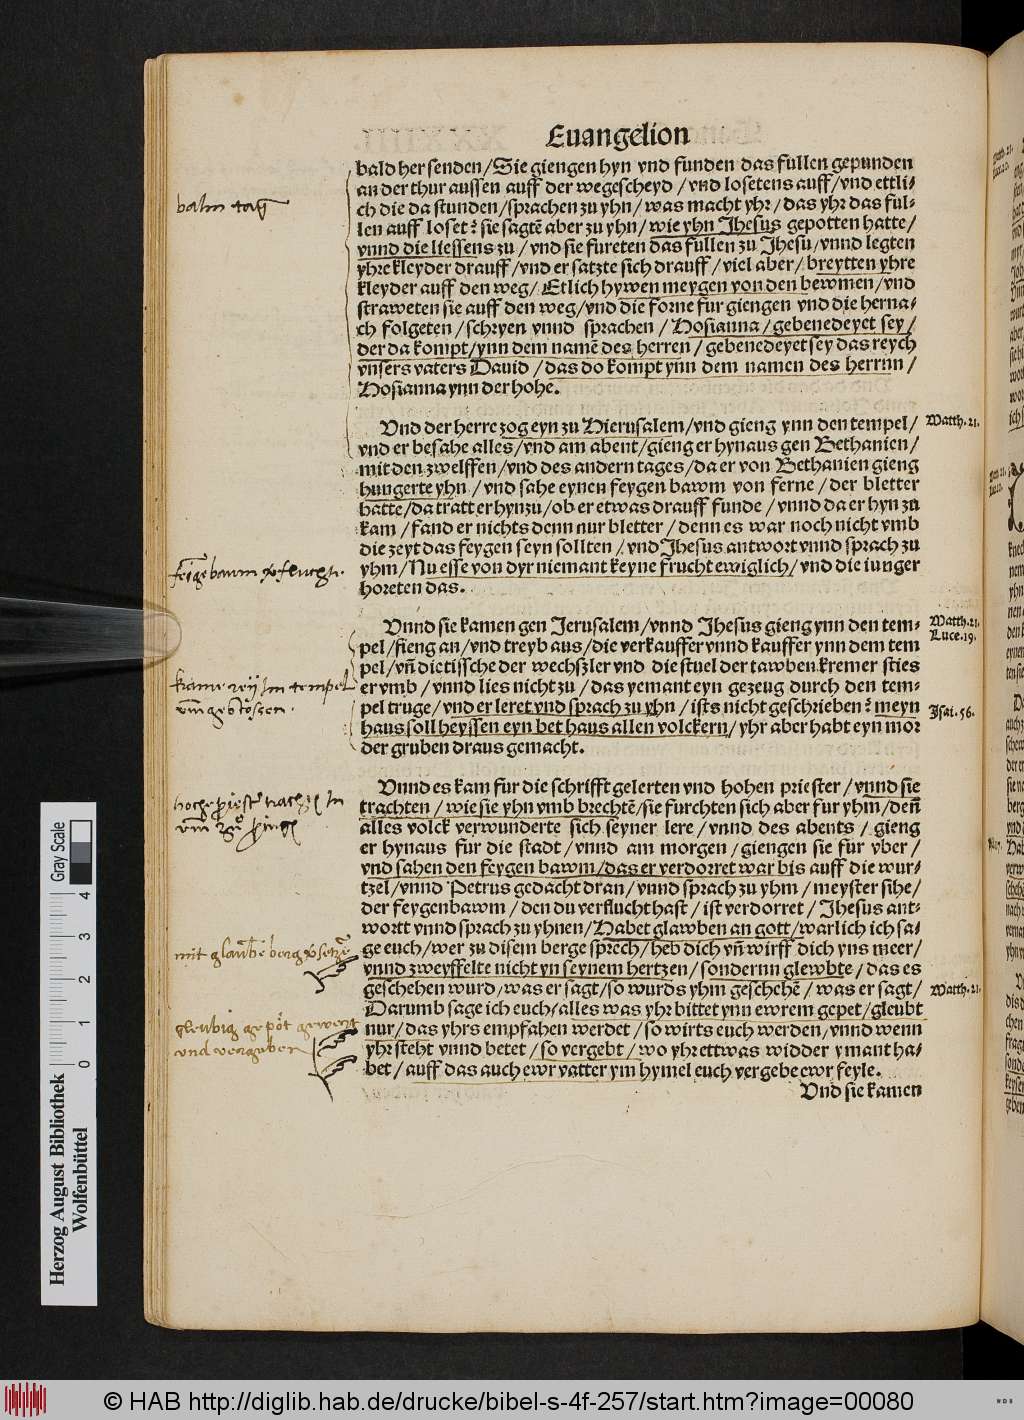 Euangelion
bald her senden/Sie giengen hyn vnd funden das fullen gepunden
an der thur aussen auff der wegescheyd /vnd losetens auff/vnd ettli-
ch die da stunden/sprachen zu yhn/ was macht yhr/ das yhr das ful-
len auff loset? sie sagtē aber zu yhn/ wie yhn Jhesus gepotten hatte/
vnnd die liessens zu/ vnd sie fureten das fullen zu Jhesu/vnnd legten
yhre kleyder drauff/vnd er satzte sich drauff/ viel aber/ breytten yhre
kleyder auff den weg/ Etlich hywen meygen von den bewmen/vnd
straweten sie auff den weg/vnd die forne fur giengen vnd die herna-
ch folgeten/ schryen vnnd sprachen / Hosianna/gebenedeyet sey/
der da kompt/ynn dem namē des herren/ gebenedeyet sey das reych
vnsers vaters Dauid /das do kompt ynn dem namen des herrnn/
Hosianna ynn der hohe.
Vnd der herre zog eyn zu Hierusalem/vnd gieng ynn den tempel/
vnd er besahe alles/vnd am abent/gieng er hynaus gen Bethanien/
mit den zwelffen/vnd des andern tages/da er von Bethanien gieng
hungerte yhn/ vnd sahe eynen feygen bawm von ferne/ der bletter
hatte/da tratt er hynzu/ob er etwas drauff funde/ vnnd da er hyn zu
kam/ fand er nichts denn nur bletter/ denn es war noch nicht vmb
die zeyt das feygen seyn sollten/ vnd Jhesus antwort vnnd sprach zu
yhm/Nu esse von dyr niemant keyne frucht ewiglich/ vnd die iunger
horeten das.
Vnnd sie kamen gen Jerusalem/vnnd Jhesus gieng ynn den tem-
pel/fieng an/vnd treyb aus/die verkauffer vnnd kauffer ynn dem tem
pel/vñ die tissche der wechszler vnd die stuel der tawben kremer sties
er vmb/ vnnd lies nicht zu/ das yemant eyn gezeug durch den tem-
pel truge/vnd er leret vnd sprach zu yhn/ ists nicht geschrieben? meyn
haus soll heyssen eyn bet haus allen volckern/yhr aber habt eyn mor
der gruben draus gemacht.
Vnnd es kam fur die schrifft gelerten vnd hohen priester/vnnd sie
trachten/ wie sie yhn vmb brechtē/sie furchten sich aber fur yhm/deñ
alles volck verwunderte sich seyner lere/ vnnd des abents/ gieng
er hynaus fur die stadt/ vnnd am morgen/giengen sie fur vber/
vnd sahen den feygen bawm/das er verdorret war bis auff die wur-
tzel/vnnd Petrus gedacht dran/ vnnd sprach zu yhm/ meyster sihe/
der feygenbawm/ den du verflucht hast/ ist verdorret/ Jhesus ant-
wortt vnnd sprach zu yhnen/Habet glawben an gott/warlich ich sa-
ge euch/wer zu disem berge sprech/heb dich vñ wirff dich yns meer/
vnnd zweyffelte nicht yn seynem hertzen/sondernn glewbte/das es
geschehen wurd/was er sagt/so wurds yhm geschehē/ was er sagt/
Darumb sage ich euch/alles was yhr bittet ynn ewrem gepet/gleubt
nur/das yhrs empfahen werdet/so wirts euch werden/vnnd wenn
yhr steht vnnd betet/so vergebt/ wo yhr ettwas widder ymant ha-
bet/auff das auch ewr vatter ym hymel euch vergebe ewr feyle.
Vnd sie kamen
Matth.21.
Matth.21.
Luce.19.
Isai.56.
Matth.21.
balm tag
feige baum
kramerey im tempel
umgestossen.
mit glauben berg
gleubig gepöt gewert
vnd vergeben
Herzog August Bibliothek
Wolfenbüttel
Gray Scale
0 1 2 3 4
© HAB http://diglib.hab.de/drucke/bibel-s-4f-257/start.htm?image=00080